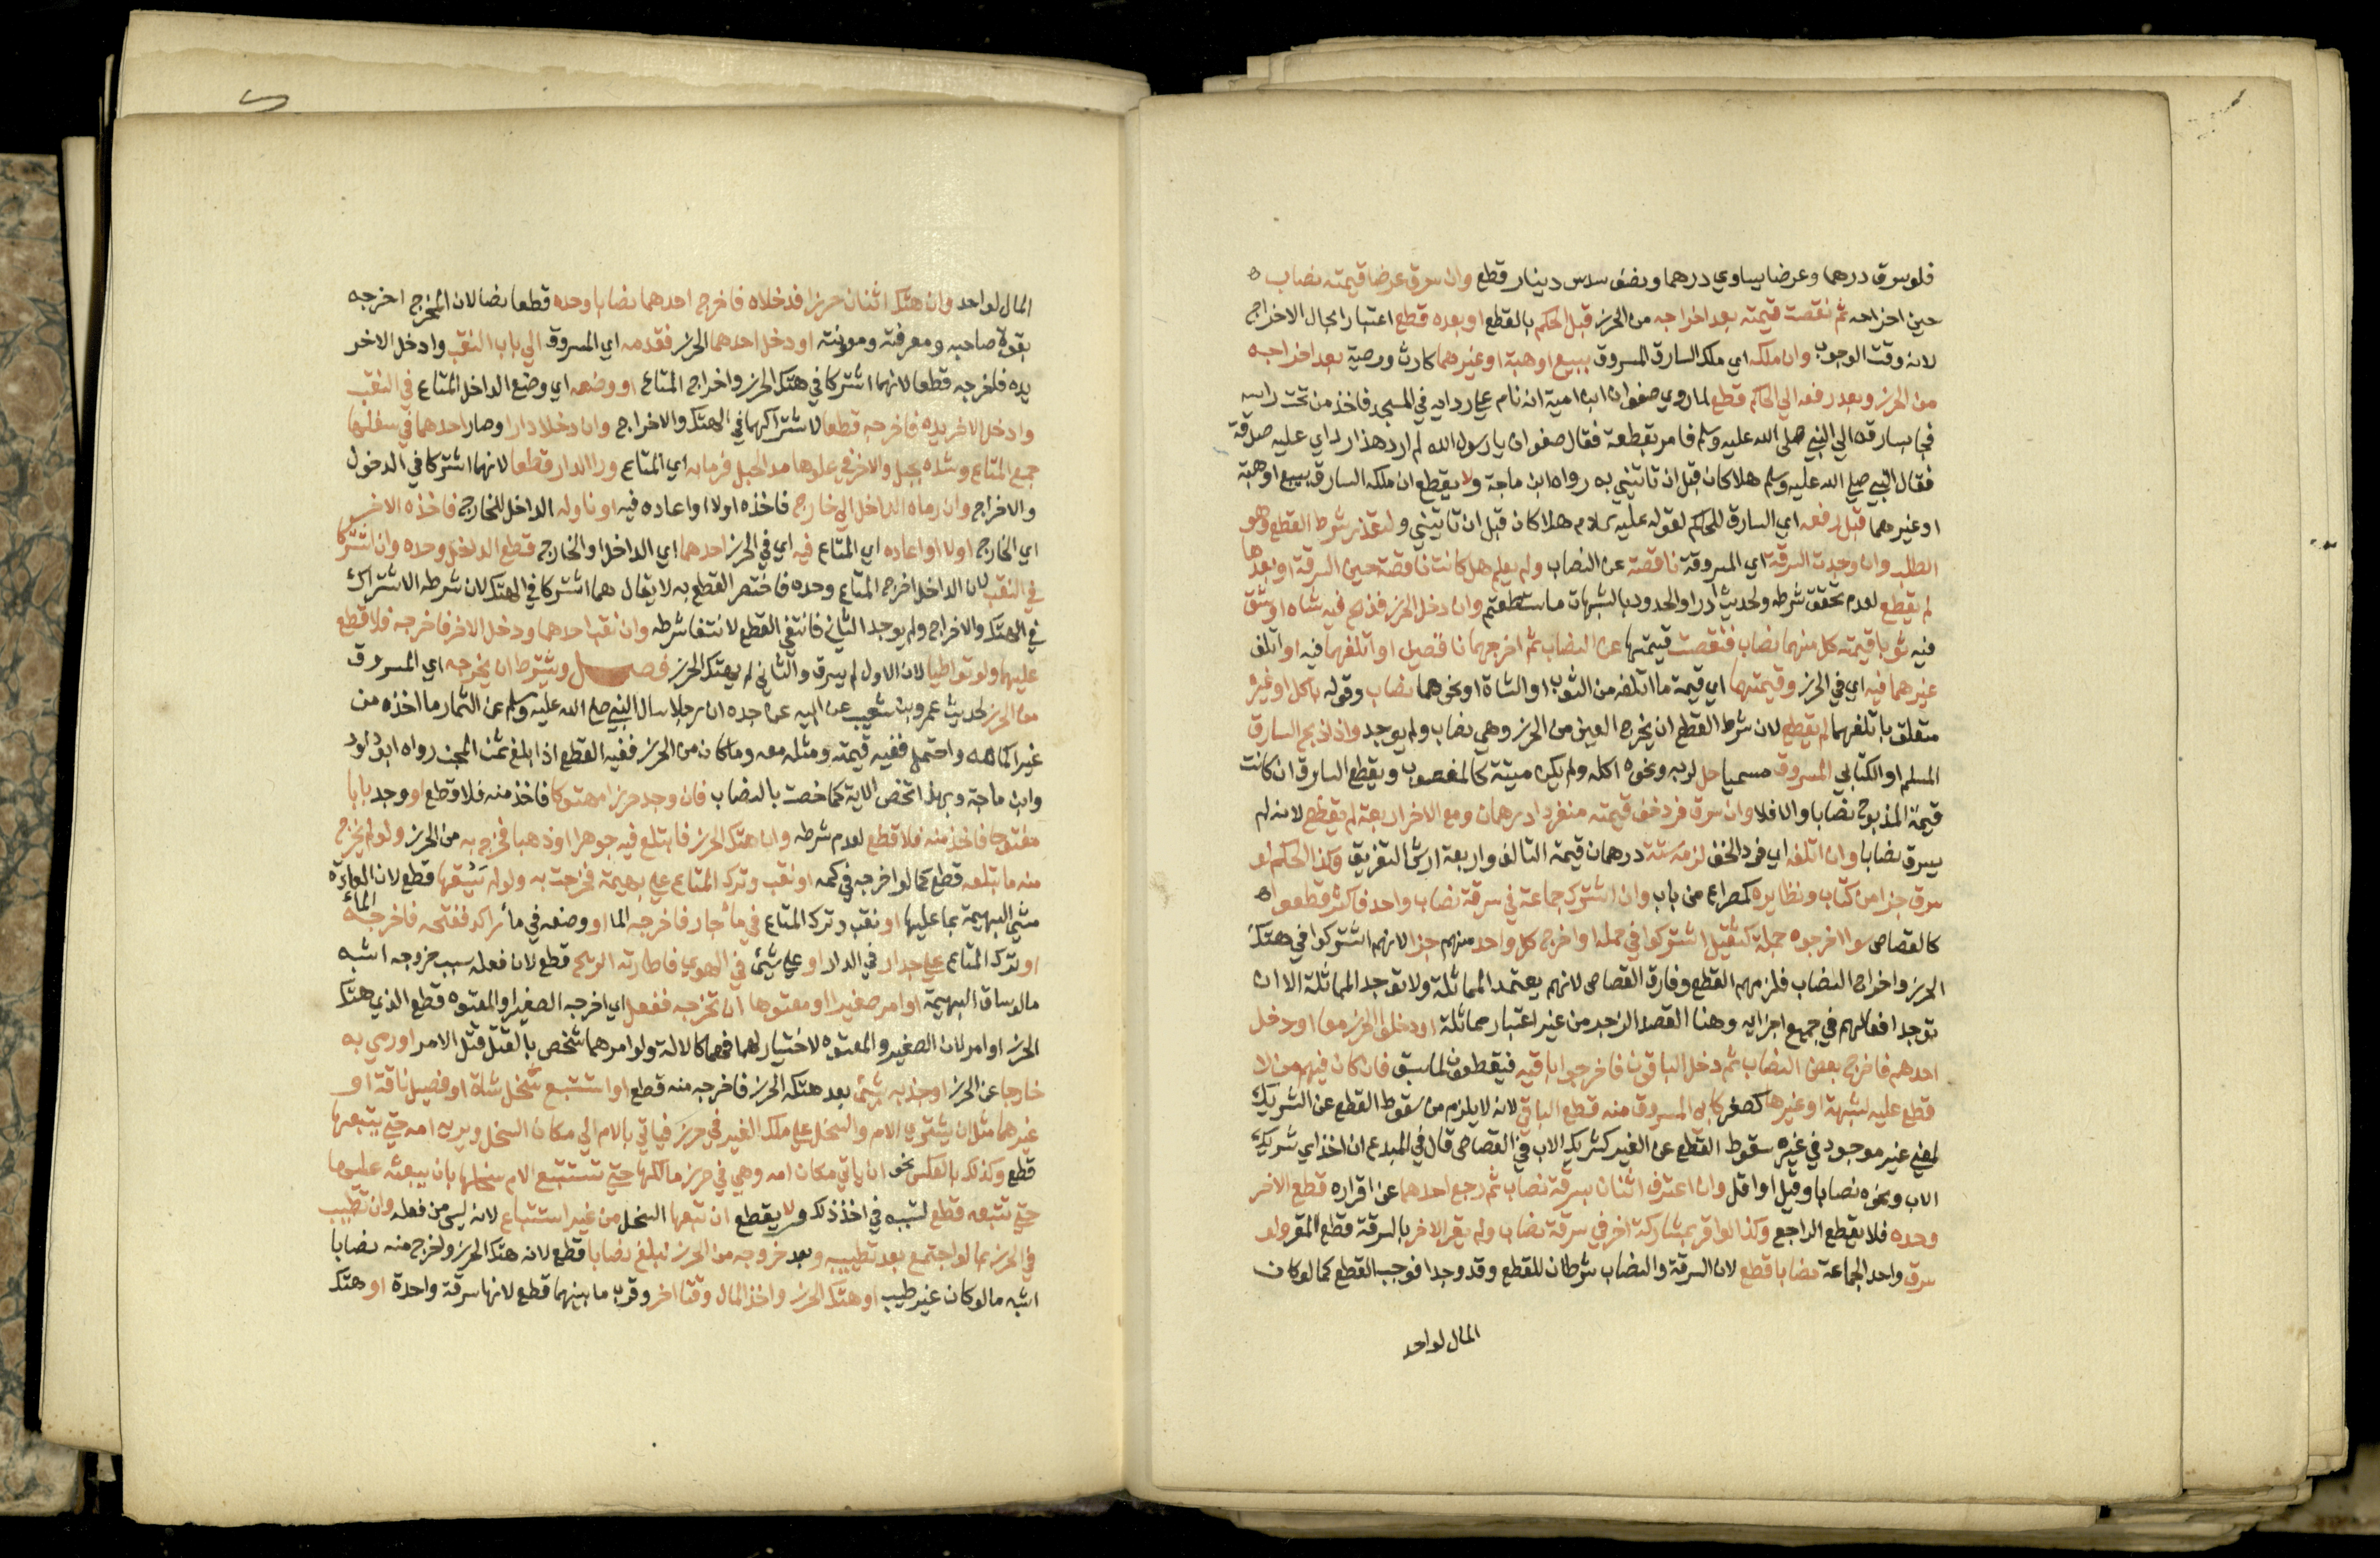 فلو سرق درهما وعرضا يساوي درهما ونصف سدس دينار قطع وان سرق عرضا قيمته نصاب ه
حين اخراجه ثم نقصت قيمته بعد اخراجه من الحرز قبل الحكم بالقطع او بعده قطع اعتبارا بحال الاخراج
لانه وقت الوجوب وان ملكه اي ملك السارق المسروق ببيع او هبة او غيرهما كارث ووصية بعد اخراجه
من الحرز وبعد رفعه الي الحاكم قطع لما روي صفوان ابن امية انه نام علي ردايه في المسجد فاخذ من تحت راسه
فجا بسارقه الي النبي صلي الله عليه وسلم فامر بقطعه فقال صفوان يا رسول الله لم ارد هذا رداي عليه صدقة
فقال النبي صلي الله عليه وسلم هلا كان قبل ان تاتيني به رواه ابن ماجة ولا يقطع ان ملكه السارق ببيع او هبة
او غيرهما قبل رفعه اي السارق للحاكم لقوله عليه سلام هلا كان قبل ان تاتيني ولتعذر شرط القطع وهو
الطلب وان وجدت السرقة اي المسروقة ناقصة عن النصاب ولم يعلم هل كانت ناقصة حين السرقة او بعدها
لم يقطع لعدم تحقق شرطه ولحديث ادراوا الحدود بالشبهات ما استطعتم وان دخل الحرز فذبح فيه شاه او شق
فيه ثوبا قيمته كل منهما نصاب فنقصت قيمتها عن النصاب ثم اخرجهما ناقصين او اتلفهما فيه او اتلف
غيرهما فيه اي في الحرز وقيمتها اي قيمة ما اتلفه من الثوب او الشاة او نحوهما نصاب وقوله باكل او غيره
متعلق باتلفهما لم يقطع لان شرط القطع ان يخرج العين من الحرز وهي نصاب ولم يوجد واذا ذبح السارق
المسلم او الكتابي المسروق مسميا حل لربه ونحوه اكله ولم يكن ميتة كالمغصوب ويقطع السارق ان كانت
قيمة المذبوح نصابا والا فلا وان سرق فرد خف قيمته منفردا درهمان ومع الاخر اربعة لم يقطع لانه لم
يسرق نصابا وان اتلفه اي فرد الخف لزمه ستة درهمان قيمة التالف واربعة ارش التفريق وكذا الحكم لو
سرق جزا من كتاب ونظايره كمصراع من باب وان اشترك جماعة في سرقة نصاب واحد فاكثر قطعوا ه
كالقصاص سوا اخرجوه جملة كثقيل اشتركوا في حمله او اخرج كل واحد منهم جزا لانهم اشتركوا في هتك
الحرز واخراج النصاب فلزمهم القطع وفارق القصاص لانهم يعتمد المماثلة ولا توجد المماثلة الا ان
توجد افعالهم في جميع اجزايه وهنا القصد الزجر من غير اعتبار مماثلة او دخلوا الحرز معا او دخل
احدهم فاخرج بعض النصاب ثم دخل الباقون فاخرجوا باقيه فيقطعون لما سبق فان كان فيهم من لا
قطع عليه لشبهة او غيرها كصغر كابي المسروق منه قطع الباقي لانه لا يلزم من سقوط القطع عن الشريك
لمعني غير موجود في غيره سقوط القطع عن الغير كشريك الاب في القصاص قال في المبدع ان اخذ اي شريك
الاب ونحوه نصابا وقيل او اقل وان اعترف اثنان بسرقة نصاب ثم رجع احدهما عن اقراره قطع الاخر
وحده فلا يقطع الراجع وكذا لو اقر بمشاركة اخر في سرقة نصاب ولم يقر الاخر بالسرقة قطع المقر ولو
سرق واحد الجماعة نصابا قطع لان السرقة والنصاب شرطان للقطع وقد وجدا فوجب القطع كما لو كان
المال لواحد
المال لواحد وان هتك اثنان حرزا فدخلاه فاخرج احدهما نصابا وحده قطعا نصا لان المخرج اخرجه
بقوة صاحبه ومعرفته ومعونته او دخل احدهما الحرز فقدمه اي المسروق الي باب النقب وادخل الاخر
يده فاخرجه قطعا لانهما اشتركا في هتك الحرز واخراج المتاع او وضعه اي وضع الداخل المتاع في النقب
وادخل الاخر يده فاخرجه قطعا لاشتراكهما في الهتك والاخراج وان دخلا دارا وصار احدهما في سفلها
جمع المتاع وشده بحبل والاخر في علوها مد الحبل فرما به اي المتاع ورا الدار قطعا لانهما اشتركا في الدخول
والاخراج وان رماه الداخل الي خارج فاخذه اولا او اعاده فيه او ناوله الداخل للخارج فاخذه الاخر
اي الخارج اولا او اعاده اي المتاع فيه اي في الحرز احدهما اي الداخل او الخارج قطع الداخل وحده وان اشتركا
في النقب لان الداخل اخرج المتاع وحده فاختص القطع به لا يقال هما اشتركا في الهتك لان شرطه الاشتراك
في الهتك والاخراج ولم يوجد الثاني فانتفي القطع لانتفا شرطه وان نقب احدهما ودخل الاخر فاخرجه فلا قطع
عليهما ولو تواطيا لان الاول لم يسرق والثاني لم يهتك الحرز فصل ويشترط ان يخرجه اي المسروق
من الحرز لحديث عمرو بن شعيب عن ابيه عن جده ان رجلا سال النبي صلي الله عليه وسلم عن الثمار ما اخذه من
غير اكمامه واحتمل ففيه قيمته ومثله معه وما كان من الحرز ففيه القطع اذا بلغ ثمن المجن رواه ابو داود
وابن ماجة وبهذا تخص الاية كما خصت بالنصاب فان وجد حرزا مهتوكا فاخذ منه فلا قطع او وجد بابا
مفتوحا فاخذ منه فلا قطع لعدم شرطه وان هتك الحرز فابتلع فيه جوهرا او ذهبا فخرج به من الحرز ولو لم يخرج
منه ما بتلعه قطع كما لو اخرجه في كمه او نقب وترك المتاع علي بهيمة فخرجت به ولو لم يسقها قطع لان العادة
مشي البهيمة بما عليها او نقب وترك المتاع في ماء جار فاخرجه الما او وضعه في ماء راكد ففتحه فاخرجه الماء
او ترك المتاع علي جدار في الدار او علي شيئ في الهوي فاطارته الريح قطع لان فعله سبب خروجه اشبه
ما لو ساق البهيمة او امر صغيرا او معتوها ان تخرجه ففعل اي اخرجه الصغير او المعتوه قطع الذي هتك
الحرز او امر لان الصغير والمعتوه لا اختيار لهما فهما كالالة ولو امرهما شخص بالقتل قتل الامر او رمي به
خارجا عن الحرز او جذبه بشيئ بعد هتكه الحرز فاخرجه منه قطع او استتبع سخل شاة او فصيل ناقة او
غيرهما مثل ان يشتري الام والسخل علي ملك الغير في حرز فياتي بالام الي مكان السخل ويريه امه حتي يتبعها
قطع وكذلك بالعكس نحو ان ياتي مكان امه وهي في حرز مالكها حتي تستتبع الام سخلها بان يبعثه عليها
حتي تتبعه قطع لتسببه في اخذ ذلك ولا يقطع ان تبعها السخل من غير استتباع لانه ليس من فعله وان تطيب
في الحرز بما لو اجتمع بعد تطييبه وبعد خروجه من الحرز لبلغ نصابا قطع لانه هتك الحرز واخرج منه نصابا
اشبه ما لو كان غير طيب او هتك الحرز واخذ المال وقتا اخر وقرب ما بينهما قطع لانها سرقة واحدة او هتك